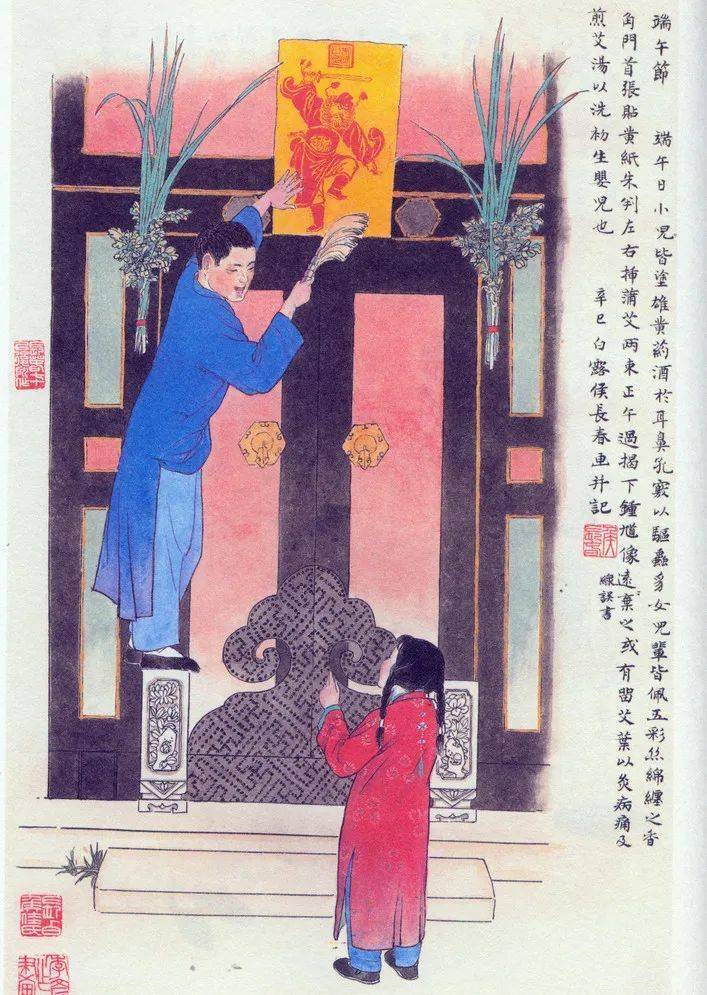 端午節 端午日小兒皆塗雄黄葯酒於耳鼻孔竅以驅蟲豸女兒輩皆佩五彩絲綿纏之香
角門首張貼黄紙朱判左右挿蒲艾兩束正午過揭下鍾馗像遠棄之或有留艾葉以灸病痛及
煎艾湯以洗初生嬰兒也 辛巳白露侯長春画并記
線誤書